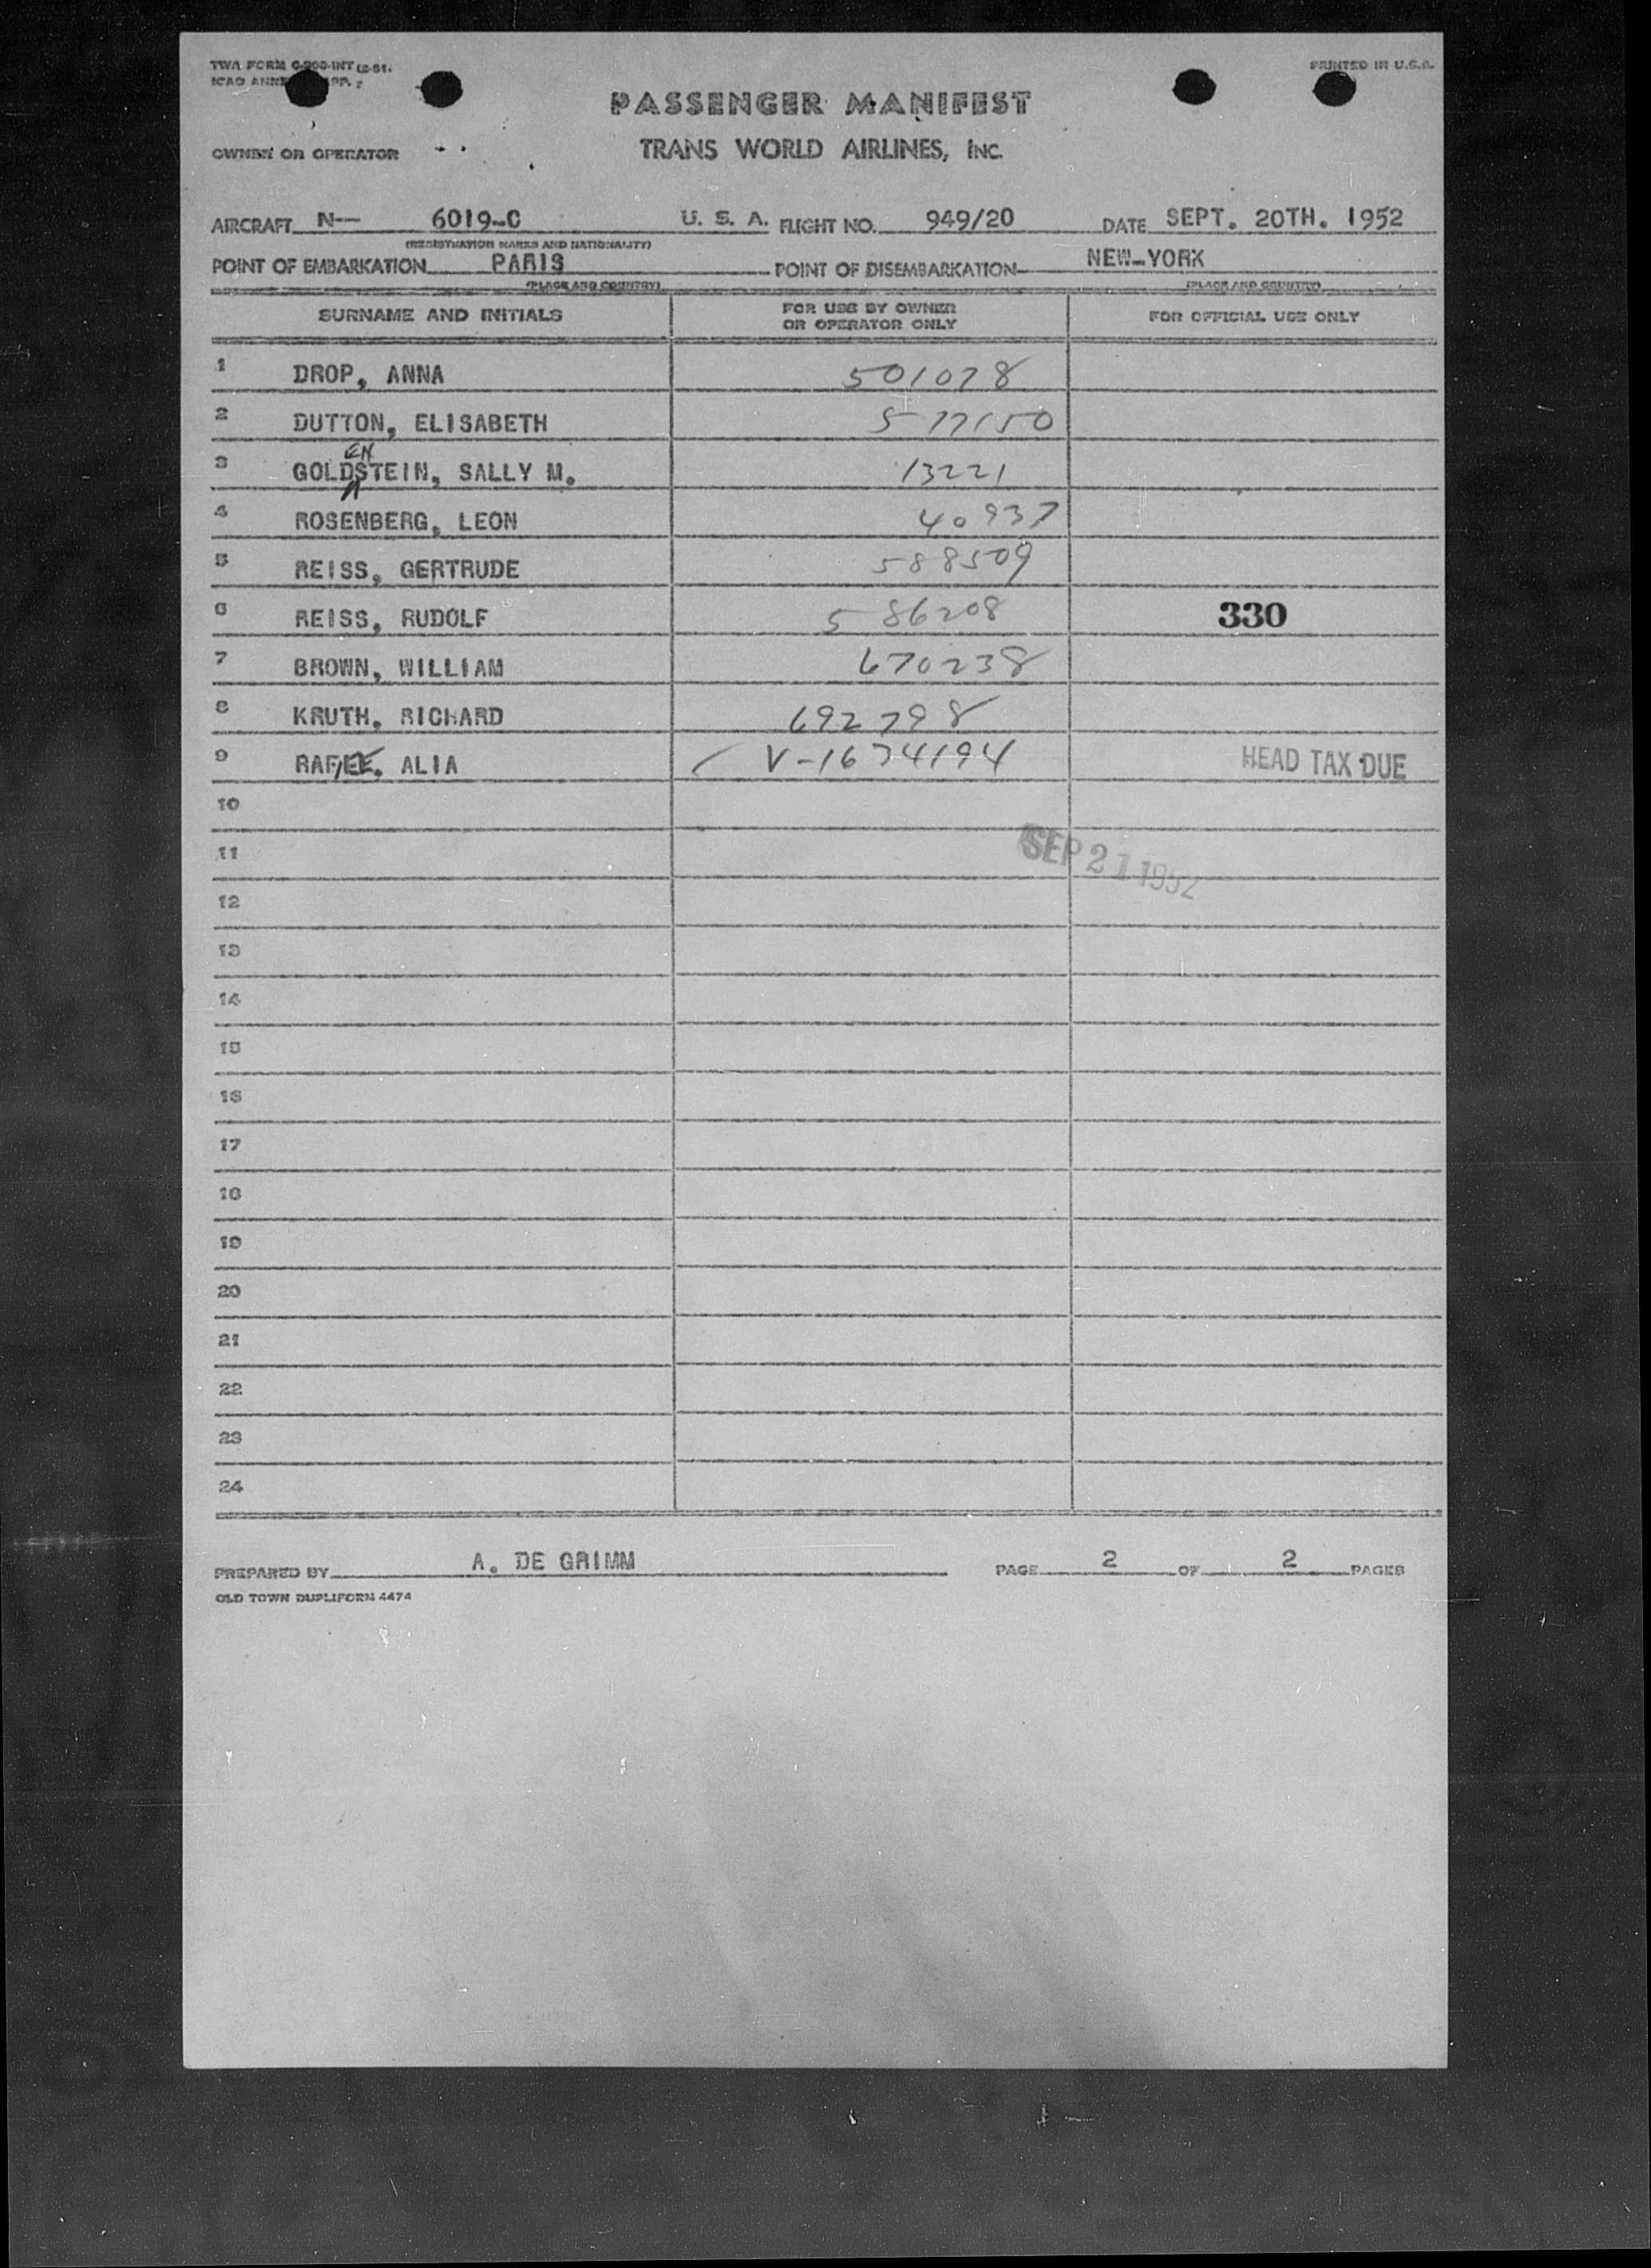 TWA FORM O-200-INT (2-51)
ICAO ANNE APP. 7
PRINTED IN U.S.A.
PASSENGER MANIFEST
OWNER OR OPERATOR
TRANS WORLD AIRLINES, INC.
AIRCRAFT N— 6019-C U. S. A. FLIGHT NO. 949/20 DATE SEPT. 20TH. 1952
(REGISTRATION MARKS AND NATIONALITY)
POINT OF EMBARKATION PARIS POINT OF DISEMBARKATION NEW-YORK
(PLACE AND COUNTRY) (PLACE AND COUNTRY)
SURNAME AND INITIALS FOR USE BY OWNER OR OPERATOR ONLY FOR OFFICIAL USE ONLY
1 DROP, ANNA 501078
2 DUTTON, ELISABETH 577150
EN
3 GOLDSTEIN, SALLY M. 13221
4 ROSENBERG, LEON 40937
5 REISS, GERTRUDE 588509
6 REISS, RUDOLF 586208 330
7 BROWN, WILLIAM 670238
8 KRUTH, RICHARD 692798
9 ALIA V-1674194 HEAD TAX DUE
10
11 SEP 21 1952
12
13
14
15
16
17
18
19
20
21
22
23
24
PREPARED BY A. DE GRIMM PAGE 2 OF 2 PAGES
OLD TOWN DUPLIFORM 4474